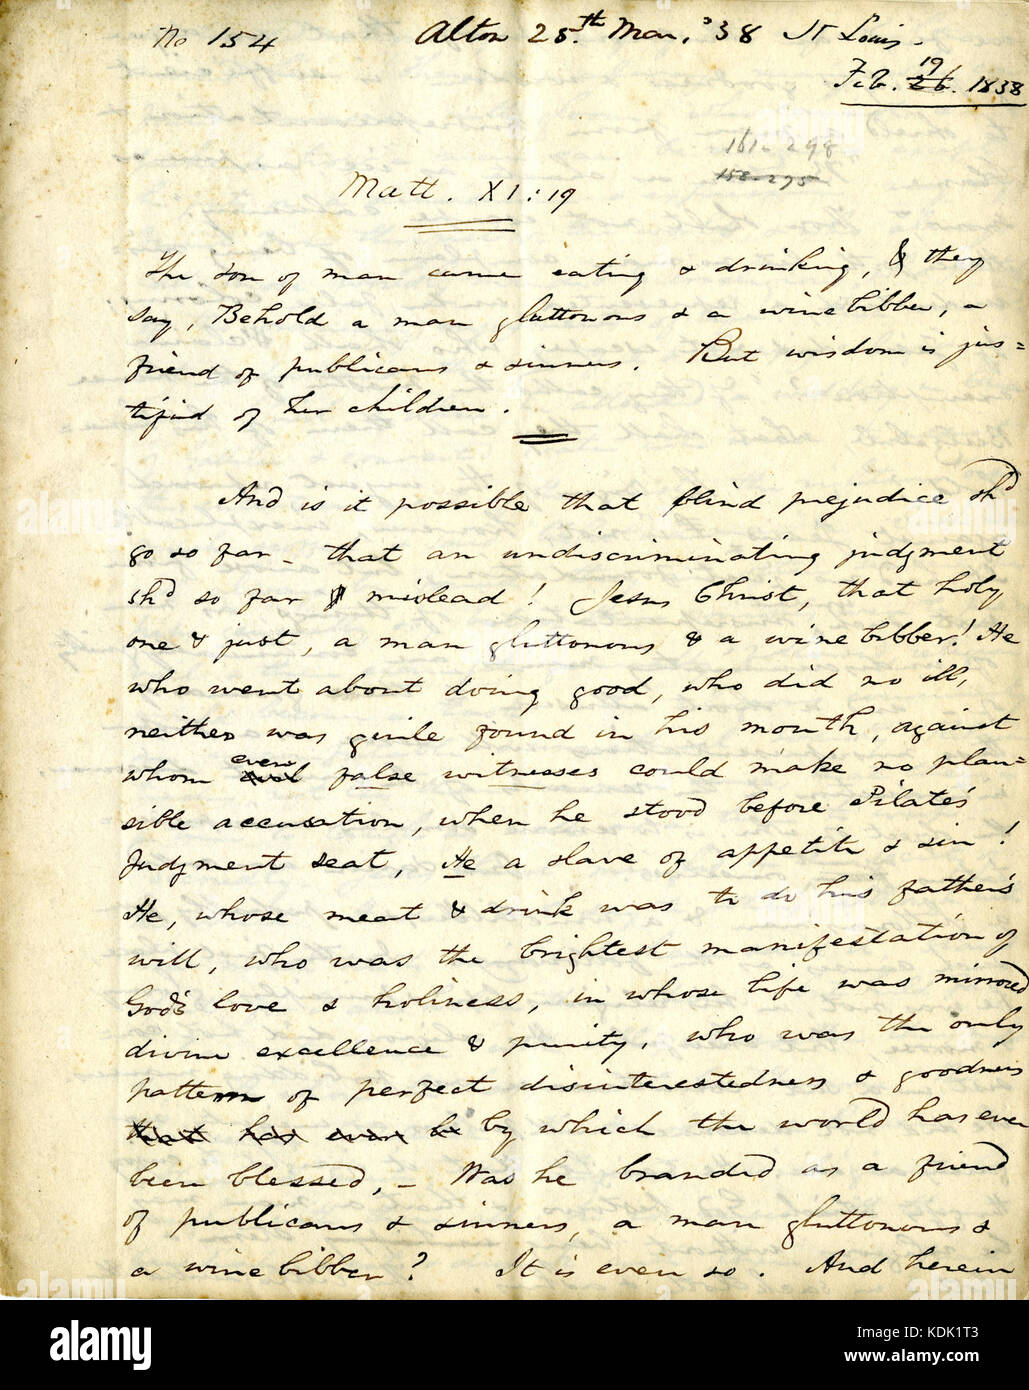 No 154 Alton 25.th Mar. '38 St Louis.
Feb. 19/ 26. 1838
161-298
158-295
Matt. XI:19
The son of man came eating & drinking, & they
say, Behold a man gluttonous & a wine bibber, a
friend of publicans & sinners. But wisdom is jus=
tified of her children.
And is it possible that blind prejudice sh'd
go so far - that an undiscriminating judgment
sh'd so far mislead! Jesus Christ, that holy
one & just, a man gluttonous & a wine bibber! He
who went about doing good, who did no ill,
neither was guile found in his mouth, against
whom even false witnesses could make no plau=
sible accusation, when he stood before Pilate's
Judgment seat, He a slave of appetite & sin!
He, whose meat & drink was to do his father's
will, who was the brightest manifestation of
God's love & holiness, in whose life was mirrored
divine excellence & purity, who was the only
pattern of perfect disinterestedness & goodness
that has ever by which the world has ever
been blessed, - Was he branded as a friend
of publicans & sinners, a man gluttonous &
a wine bibber? It is even so. And herein
alamy
Image ID: KDK1T3
www.alamy.com